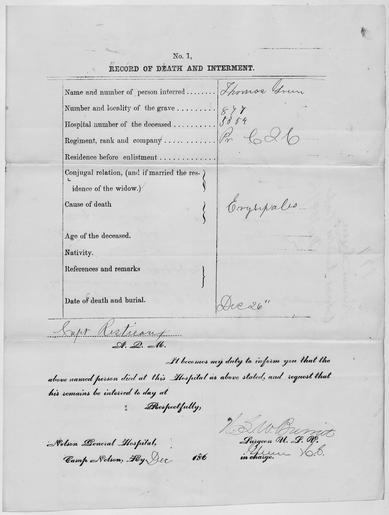 No. 1,
RECORD OF DEATH AND INTERMENT.
Name and number of person interred ........ Thomas Green
Number and locality of the grave .......... 877
Hospital number of the deceased ........... 5854
Regiment, rank and company ............... Pr
Residence before enlistment ...............
Conjugal relation, (and if married the res-
idence of the widow.)
Cause of death Erysipalas
Age of the deceased.
Nativity.
References and remarks
Date of death and burial. Dec 26"
Capt Restieaux
A. Q. M.
It becomes my duty to inform you that the
above named person died at this Hospital as above stated, and request that
his remains be interred to day at
Respectfully,
Nelson General Hospital,
Surgeon U. S. V.
Camp Nelson, Ky Dec 186
in charge.